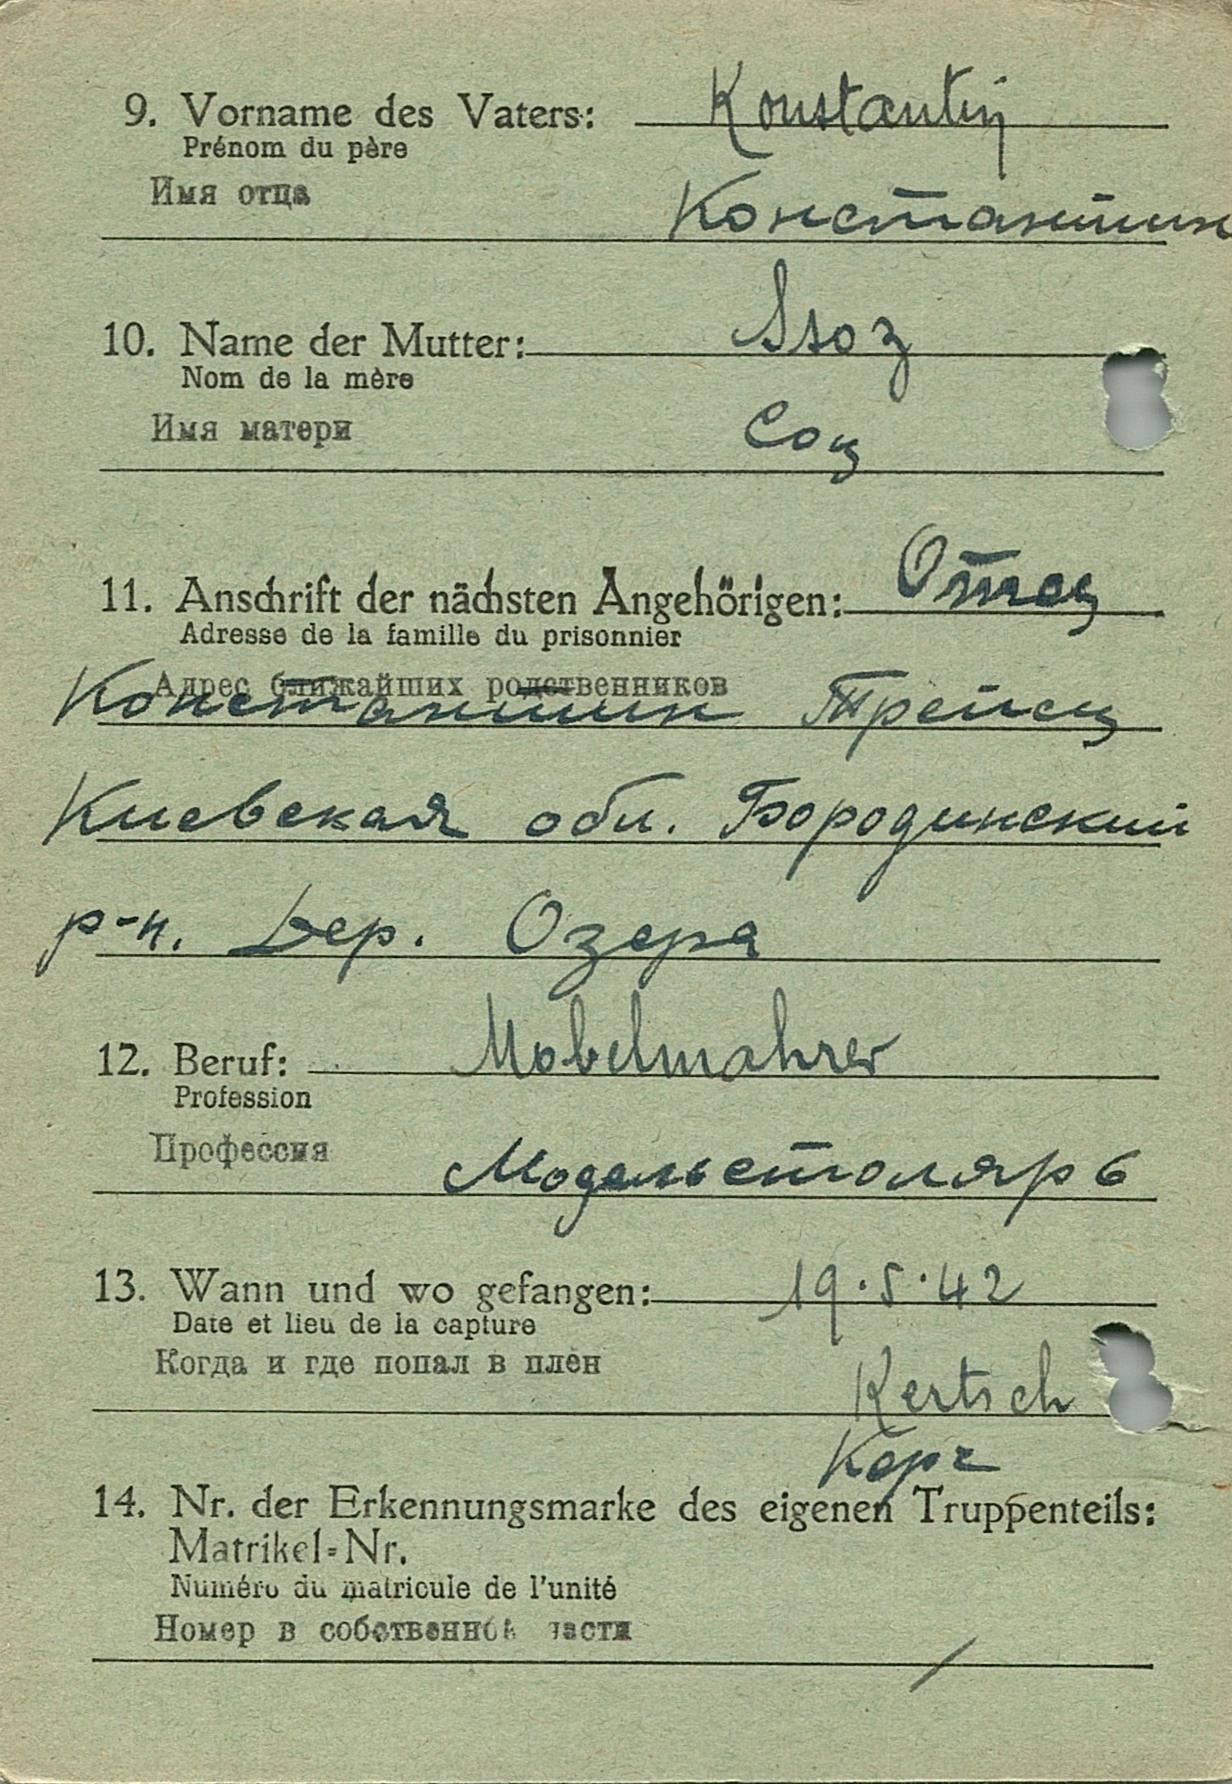 9. Vorname des Vaters: Konstantin
Prénom du père
Имя отца
Константин
10. Name der Mutter: Ssoz
Nom de la mère
Имя матери
Соц
11. Anschrift der nächsten Angehörigen: Отец
Adresse de la famille du prisonnier
Адрес ближайших родственников
Константин Трейец
Киевская обл. Бородинский
р-н. Дер. Озера
12. Beruf: Mobelmahrer
Profession
Профессия
Моделъстоляр 6
13. Wann und wo gefangen: 19.5.42
Date et lieu de la capture
Когда и где попал в плен
Kertsch
Керч
14. Nr. der Erkennungsmarke des eigenen Truppenteils:
Matrikel-Nr.
Numéro du matricule de l'unité
Номер в собственной части
/